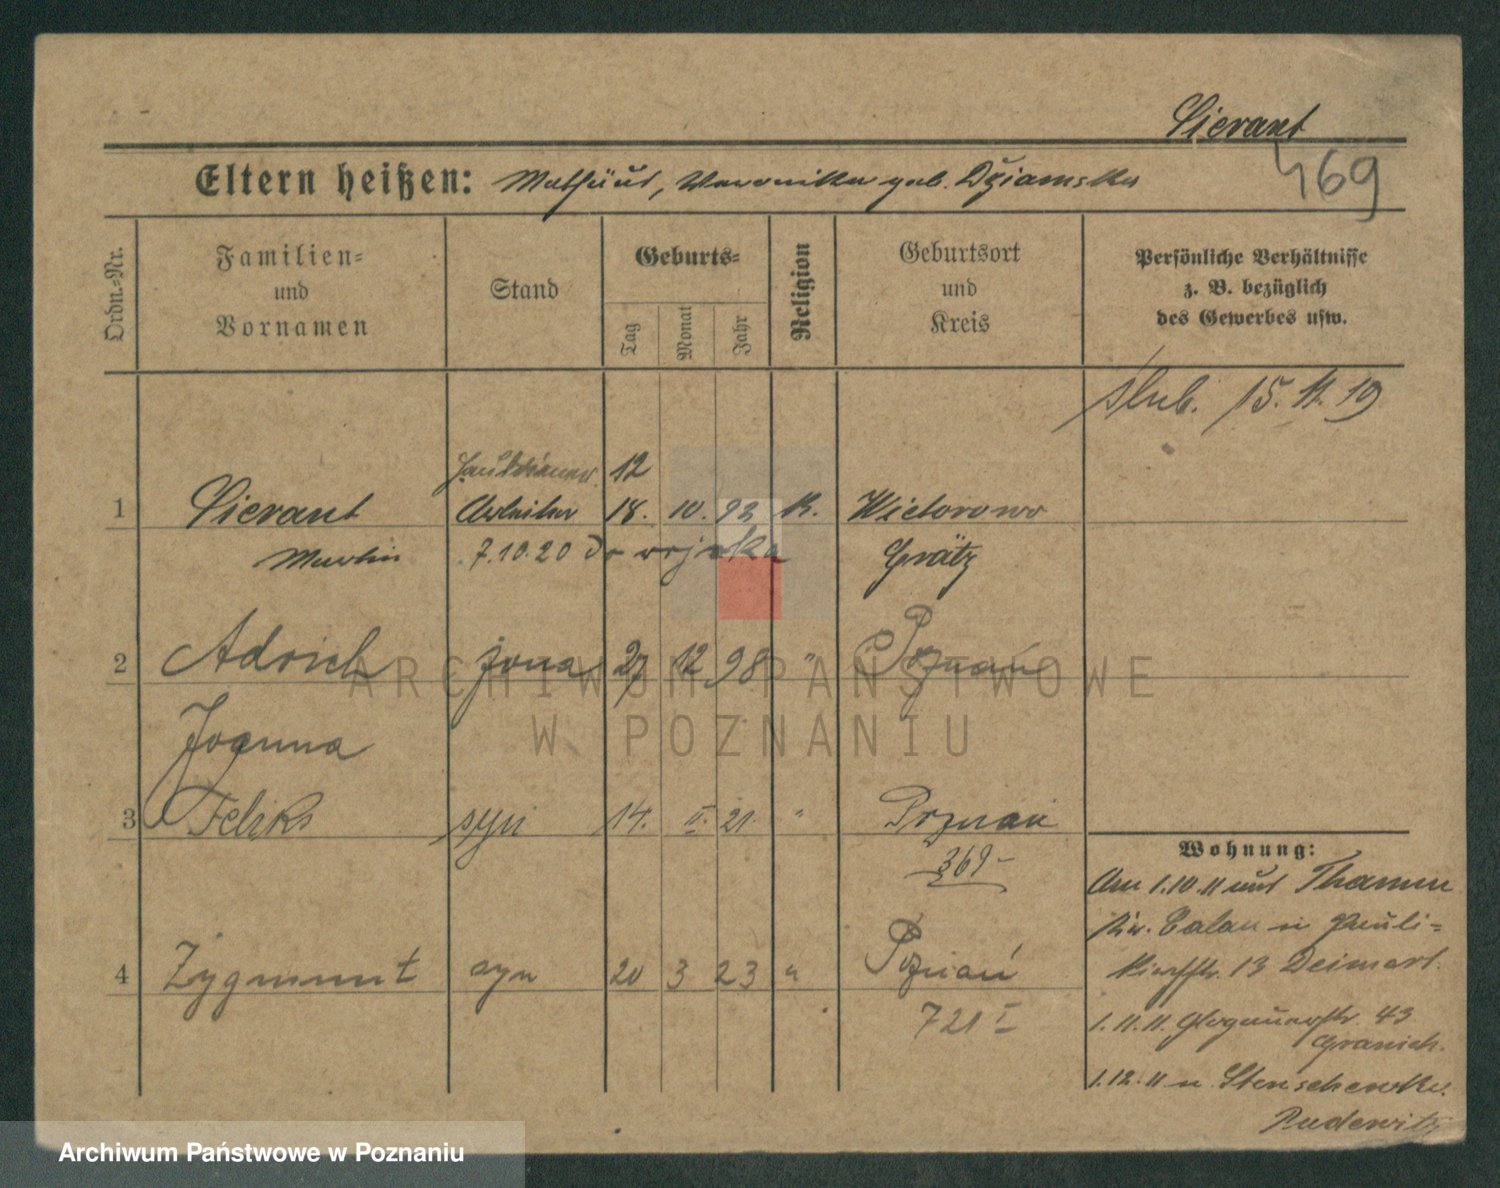 Sierant
469
Eltern heißen: Mathäus, Veronika geb. Dziamska
Ordn.-Nr.
Familien-
und
Vornamen
Stand
Geburts-
Tag
Monat
Jahr
Religion
Geburtsort
und
Kreis
Persönliche Verhältnisse
z. B. bezüglich
des Gewerbes usw.
slub. 15. 11. 19
12
1 Sierant Arbeiter 18. 10. 92 K. Wictorowo
Martin 7.10.20 do wojska Grätz
2 Adrich żona 27 12 98 " Poznań
Joanna
3 Feliks syn 14. II. 21. " Poznań
369-
Wohnung:
Am 1.10.11 unt Thamm
Kr. Calau n Pauli-
kirchstr. 13
4 Zygmunt syn 20 3 23 " Poznań
721 I
1.11.11. Glogauerstr. 43
1.12.11 n Stenschewko
Pudewitz
ARCHIWUM PAŃSTWOWE
W POZNANIU
Archiwum Państwowe w Poznaniu